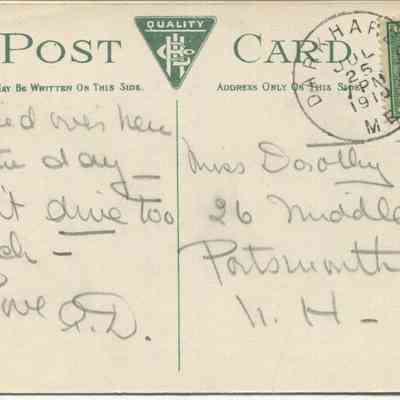 POST CARD
QUALITY
AY BE WRITTEN ON THIS SIDE.
ADDRESS ONLY ON THIS SIDE.
DARK HAR
JUL
25
PM
191
ME
ied over here
e day —
't drive too
ch —
Love A.D.
Miss Dorothy
26 Middle
Portsmouth
N. H —